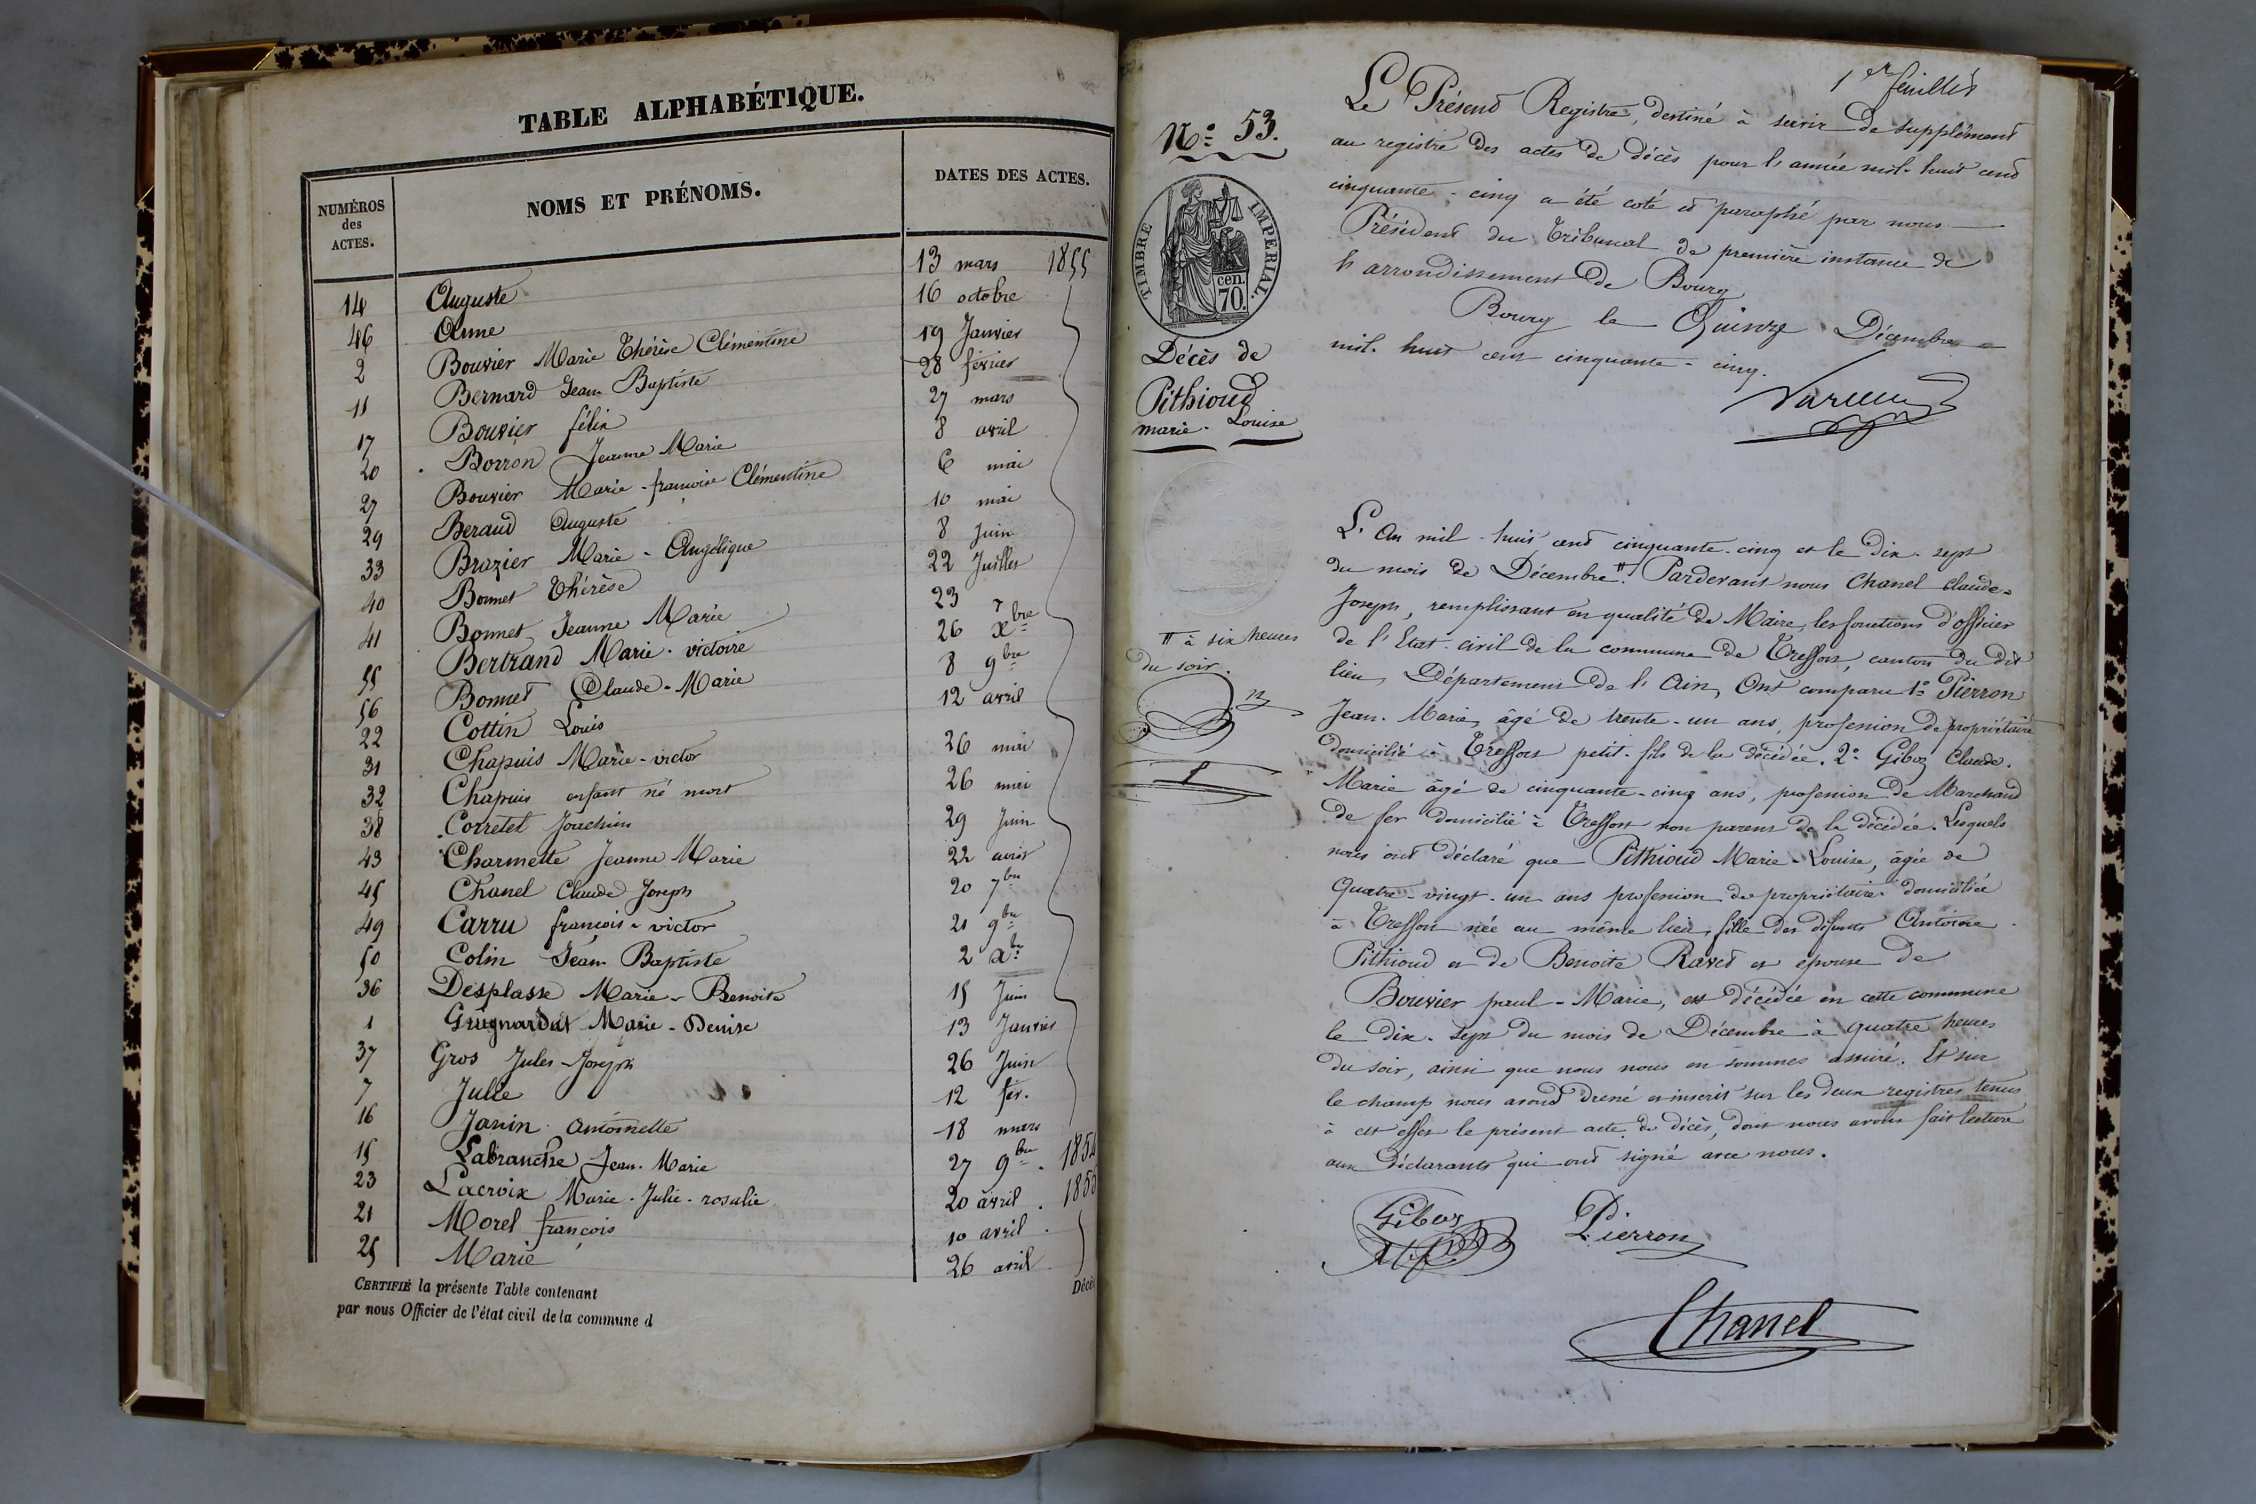 TABLE ALPHABÉTIQUE.
NUMÉROS des ACTES. NOMS ET PRÉNOMS. DATES DES ACTES.
14 Auguste 13 mars 1855
46 Anne 16 octobre
2 Bouvier Marie Thérèse Clémentine 19 Janvier
11 Bernard Jean Baptiste 28 février
17 Bouvier félix 27 mars
20 Borron Jeanne Marie 8 avril
27 Bouvier Marie-francoise Clémentine 6 mai
29 Beraud Auguste 10 mai
33 Brazier Marie-Angélique 8 Juin
40 Bonnet Thérèse 22 Juillet
41 Bonnet Jeanne Marie 23
55 Bertrand Marie-victoire 26 xbre
56 Bonnet Claude-Marie 8 9bre
22 Cottin Louis 12 avril
31 Chapuis Marie-victor 26 mai
32 Chapuis enfant né mort 26 mai
38 Corretel Joachim 29 Juin
43 Charmette Jeanne Marie 22 août
45 Chanel Claude Joseph 20 7bre
49 Carru françois-victor 21 9bre
50 Colin Jean Baptiste 2 xbre
36 Desplasse Marie-Benoite 15 Juin
1 Guignardat Marie-Denise 13 Janvier
37 Gros Jules-Joseph 26 Juin
7 Julie 12 fév.
16 Janin Antoinette 18 mars
15 Labranche Jean-Marie 27 9bre. 1854
23 Lacroix Marie-Julie-rosalie 20 avril. 1855
21 Morel françois 10 avril
25 Marie 26 avril
CERTIFIÉ la présente Table contenant Décès
par nous Officier de l'état civil de la commune d
1er feuillet
N° 53.
TIMBRE IMPÉRIAL.
cen. 70.
Décès de
Pithioud
marie-Louise
Le Présent Registre, destiné à servir de supplément
au registre des actes de décès pour l'année mil-huit cent
cinquante-cinq a été coté et paraphé par nous
Président du Tribunal de première instance de
l'arrondissement de Bourg
Bourg le Quinze Décembre
mil-huit cent cinquante-cinq.
L'An mil-huit cent cinquante-cinq et le dix-sept
du mois de Décembre # Pardevant nous Chanel Claude-
Joseph, remplissant en qualité de Maire, les fonctions d'officier
de l'Etat-civil de la commune de Treffort, canton du dit
lieu, Département de l'Ain, Ont comparu 1° Pierron
Jean-Marie, âgé de trente-un ans, profession de propriétaire
domicilié à Treffort petit-fils de la décédée. 2° Giboz Claude-
Marie âgé de cinquante-cinq ans, profession de Marchand
de fer domicilié à Treffort non parent de la décédée. Lesquels
nous ont déclaré que Pithioud Marie-Louise, âgée de
Quatre-vingt-un ans profession de propriétaire domiciliée
à Treffort née au même lieu, fille des défunts Antoine
Pithioud et de Benoite Ravet et épouse de
Bouvier paul-Marie, est décédée en cette commune
le dix-sept du mois de Décembre à quatre heures
du soir, ainsi que nous nous en sommes assuré. Et sur
le champ nous avons dressé et inscrit sur les deux registres tenus
à cet effet le présent acte de décès, dont nous avons fait lecture
aux déclarants qui ont signé avec nous.
# à six heures
du soir.
Giboz
Pierron
Chanel